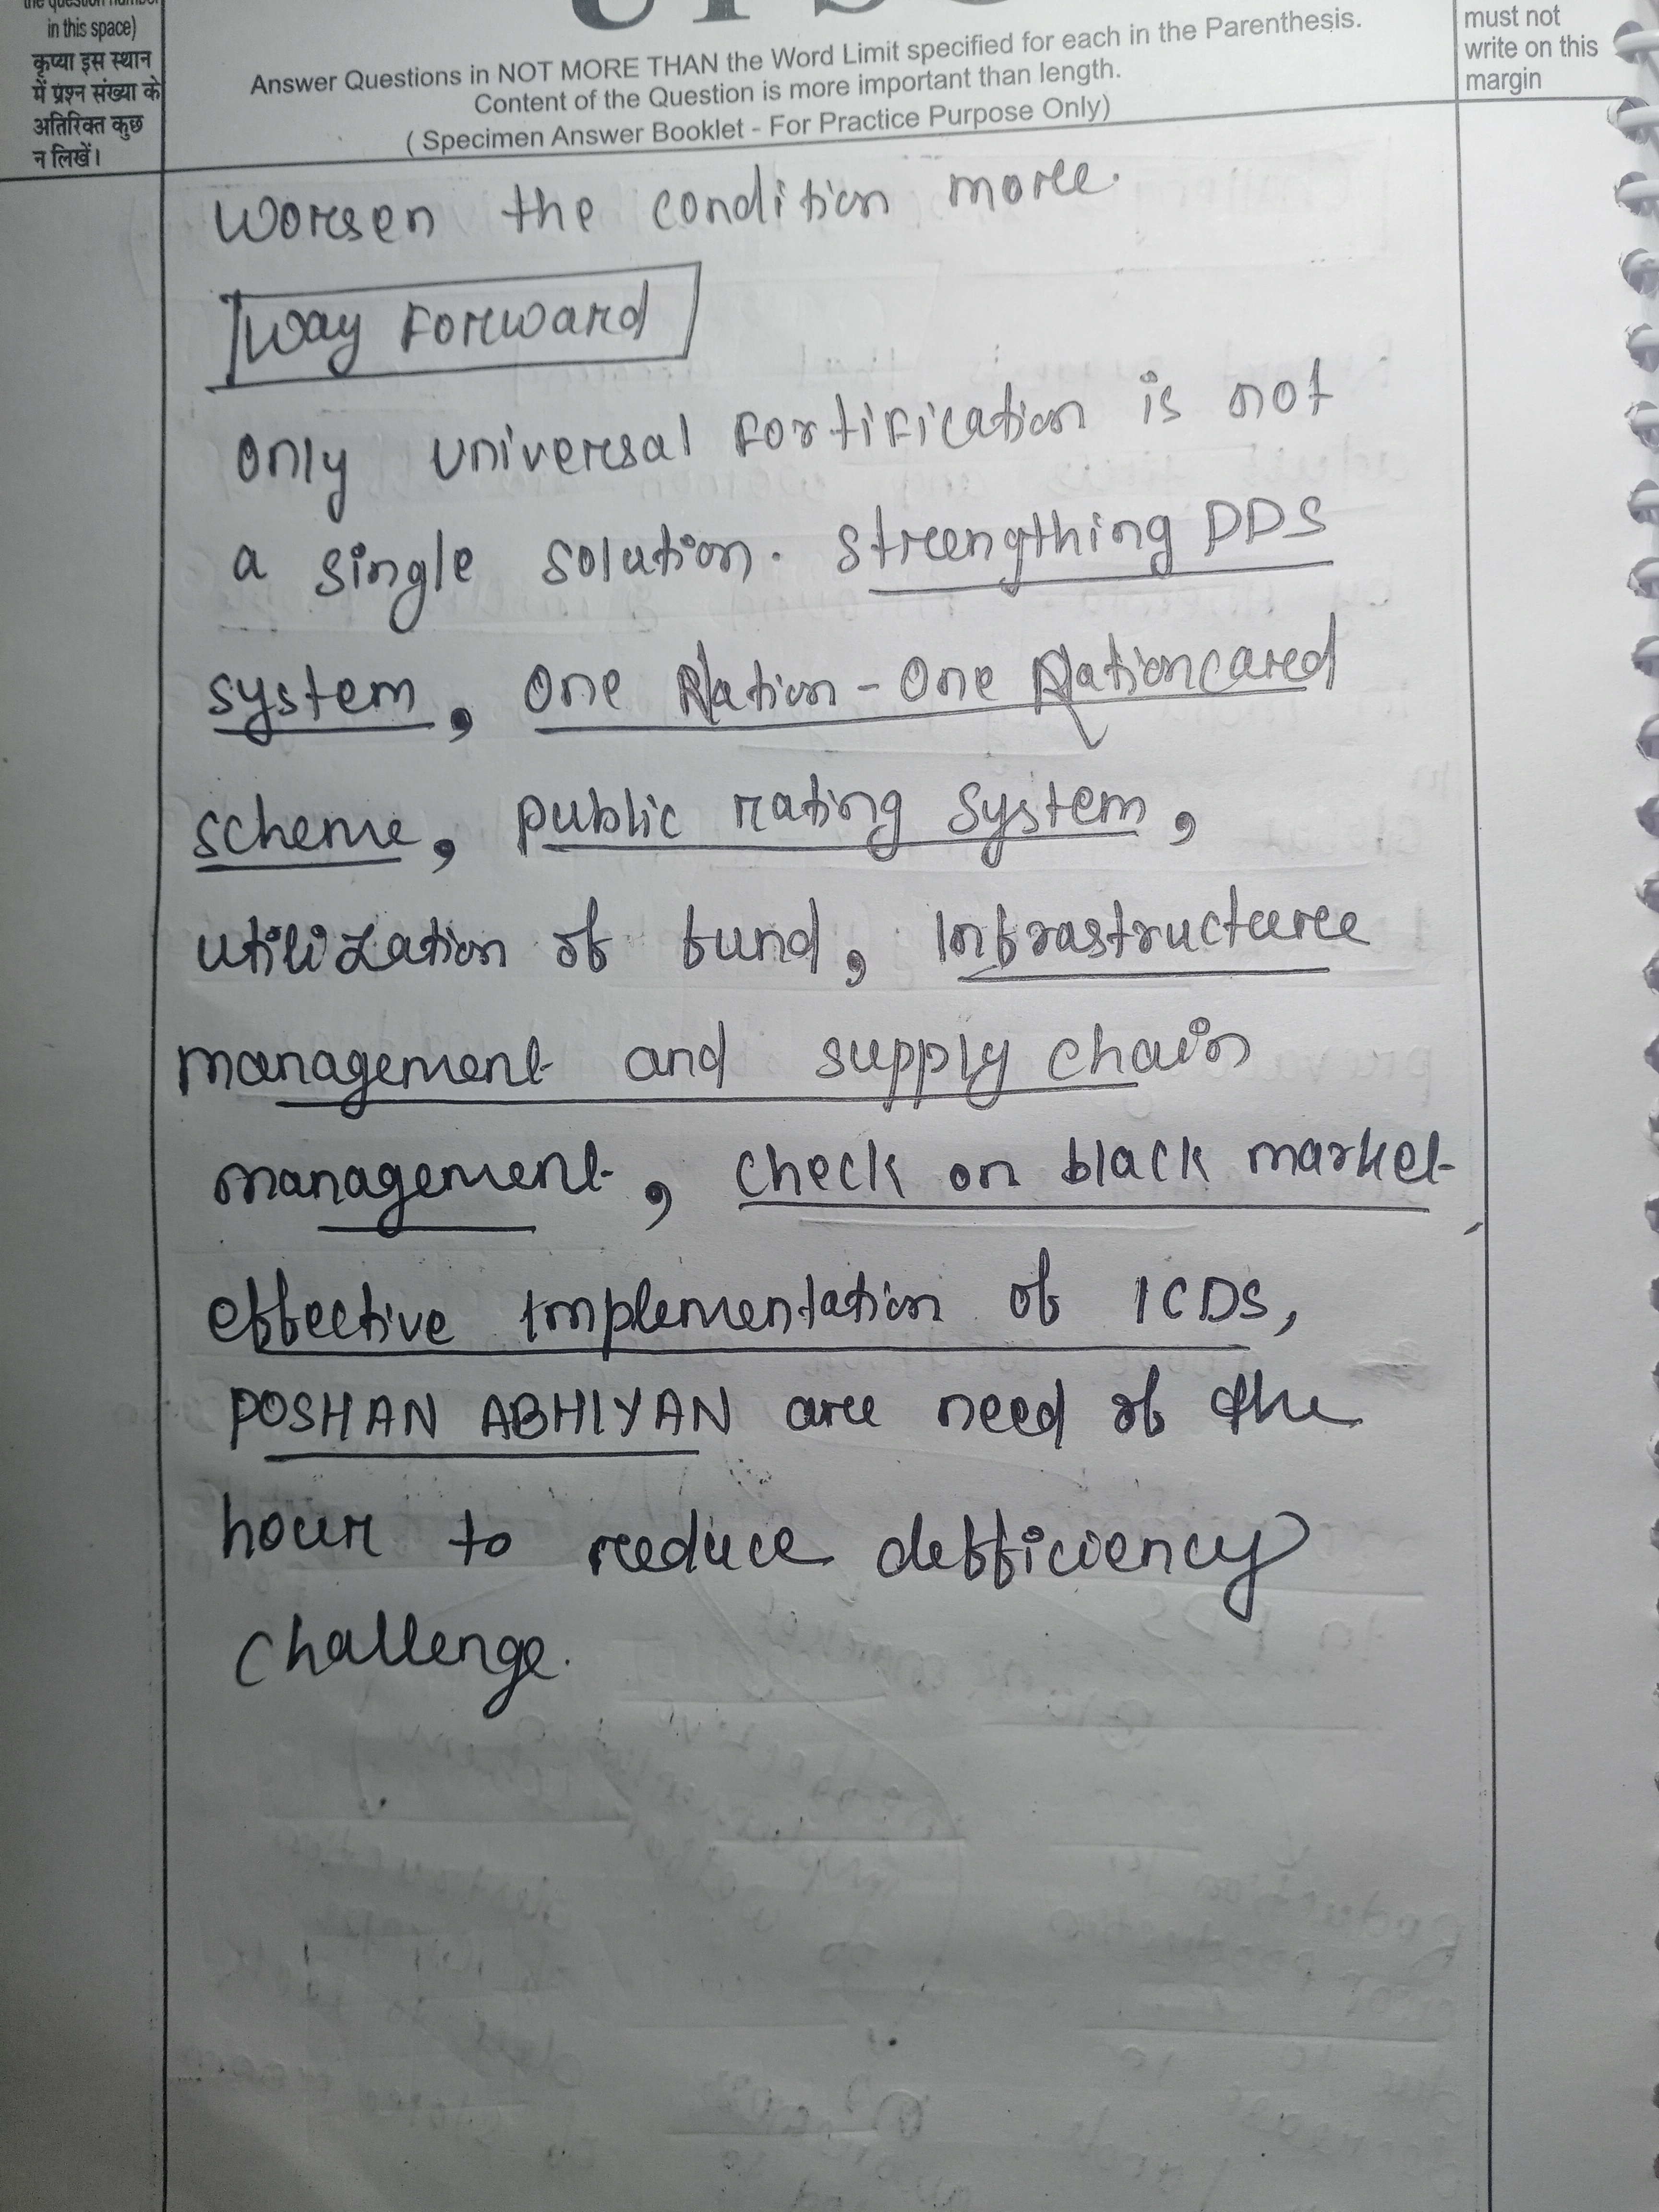 in this space)
कृप्या इस स्थान
में प्रश्न संख्या के
अतिरिक्त कुछ
न लिखें।
Answer Questions in NOT MORE THAN the Word Limit specified for each in the Parenthesis.
Content of the Question is more important than length.
( Specimen Answer Booklet - For Practice Purpose Only)
must not
write on this
margin
worsen the condition more.
Way Forward
only universal fortification is not
a single solution. strengthing PDS
system, One Nation - One Rationcard
scheme, public rating system,
utilization of fund, Infrastructure
management and supply chain
management, check on black market,
effective implementation of ICDS,
POSHAN ABHIYAN are need of the
hour to reduce defficiency
challenge.